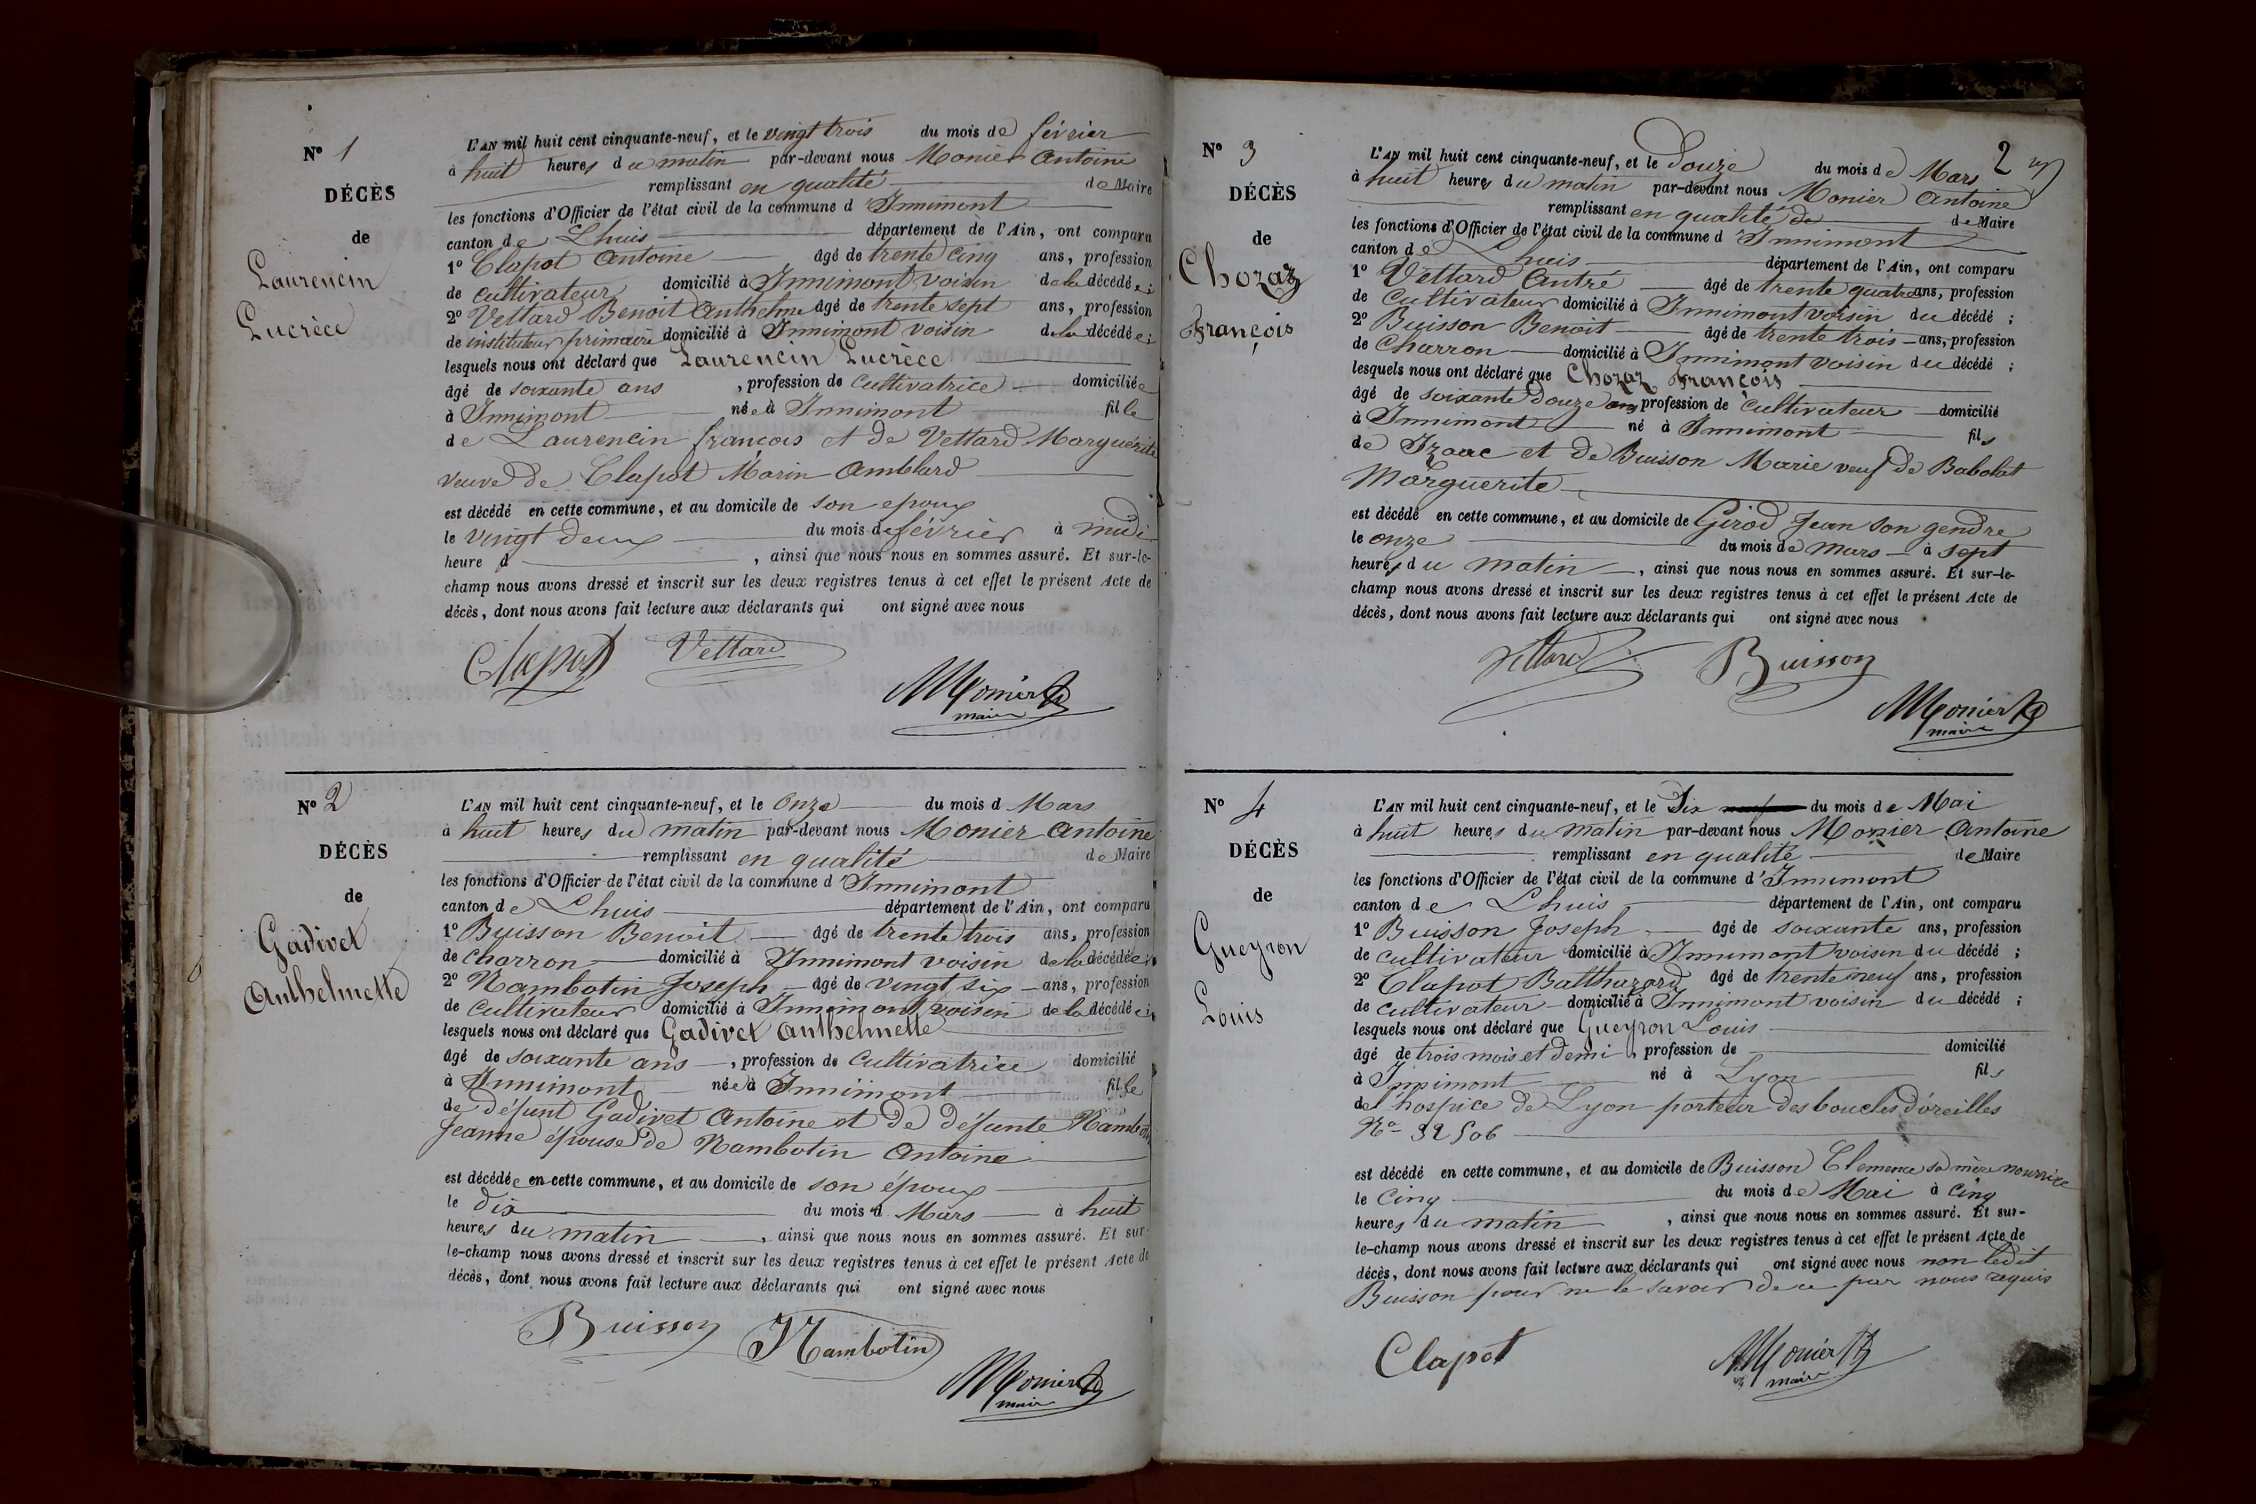 N° 1
DÉCÈS
de
Laurencin
Lucrèce
L'AN mil huit cent cinquante-neuf, et le vingt trois du mois de février
à huit heures du matin par-devant nous Monier Antoine
remplissant en qualité de Maire
les fonctions d'Officier de l'état civil de la commune d'Innimont
canton de Lhuis département de l'Ain, ont comparu
1° Clapot Antoine âgé de trente cinq ans, profession
de cultivateur domicilié à Innimont voisin de la décédée;
2° Vettard Benoit Anthelme âgé de trente sept ans, profession
de instituteur primaire domicilié à Innimont voisin de la décédée;
lesquels nous ont déclaré que Laurencin Lucrèce
âgé de soixante ans, profession de cultivatrice domiciliée
à Innimont née à Innimont fille
de Laurencin françois et de Vettard Marguerite
veuve de Clapot Marin Amblard
est décédé en cette commune, et au domicile de son epoux
le vingt deux du mois de février à midi
heure d , ainsi que nous nous en sommes assuré. Et sur-le-
champ nous avons dressé et inscrit sur les deux registres tenus à cet effet le présent Acte de
décès, dont nous avons fait lecture aux déclarants qui ont signé avec nous
Clapot Vettard
Monier
maire
N° 2
DÉCÈS
de
Gadivet
Anthelmette
L'AN mil huit cent cinquante-neuf, et le onze du mois d Mars
à huit heures du matin par-devant nous Monier Antoine
remplissant en qualité de Maire
les fonctions d'Officier de l'état civil de la commune d'Innimont
canton de Lhuis département de l'Ain, ont comparu
1° Buisson Benoit âgé de trente trois ans, profession
de charron domicilié à Innimont voisin de la décédée;
2° Nambotin Joseph âgé de vingt six ans, profession
de cultivateur domicilié à Innimont voisin de la décédée;
lesquels nous ont déclaré que Gadivet Anthelmette
âgé de soixante ans, profession de cultivatrice domicilié
à Innimont née à Innimont fille
de défunt Gadivet Antoine et de défunte Nambotin
Jeanne épouse de Nambotin Antoine
est décédée en cette commune, et au domicile de son époux
le dix du mois d Mars à huit
heures du matin, ainsi que nous nous en sommes assuré. Et sur-
le-champ nous avons dressé et inscrit sur les deux registres tenus à cet effet le présent Acte de
décès, dont nous avons fait lecture aux déclarants qui ont signé avec nous
Buisson Nambotin
Monier
maire
2
N° 3
DÉCÈS
de
Chozaz
François
L'AN mil huit cent cinquante-neuf, et le Douze du mois de Mars
à huit heures du matin par-devant nous Monier Antoine
remplissant en qualité de de Maire
les fonctions d'Officier de l'état civil de la commune d'Innimont
canton de Lhuis département de l'Ain, ont comparu
1° Vettard Antré âgé de trente quatre ans, profession
de cultivateur domicilié à Innimont voisin du décédé;
2° Buisson Benoit âgé de trente trois ans, profession
de Charron domicilié à Innimont voisin du décédé;
lesquels nous ont déclaré que Chozaz François
âgé de soixante Douze ans, profession de cultivateur domicilié
à Innimont né à Innimont fils
de Izaac et de Buisson Marie veuf de Babolat
Marguerite
est décédé en cette commune, et au domicile de Girod Jean son gendre
le onze du mois de mars à sept
heures du matin, ainsi que nous nous en sommes assuré. Et sur-le-
champ nous avons dressé et inscrit sur les deux registres tenus à cet effet le présent Acte de
décès, dont nous avons fait lecture aux déclarants qui ont signé avec nous
Vettard Buisson
Monier
maire
N° 4
DÉCÈS
de
Gueyron
Louis
L'AN mil huit cent cinquante-neuf, et le Dix du mois de Mai
à huit heures du matin par-devant nous Monier Antoine
remplissant en qualité de Maire
les fonctions d'Officier de l'état civil de la commune d'Innimont
canton de Lhuis département de l'Ain, ont comparu
1° Buisson Joseph âgé de soixante ans, profession
de cultivateur domicilié à Innimont voisin du décédé;
2° Clapot Balthazard âgé de trente neuf ans, profession
de cultivateur domicilié à Innimont voisin du décédé;
lesquels nous ont déclaré que Gueyron Louis
âgé de trois mois et demi, profession de domicilié
à Innimont né à Lyon fils
de l'hospice de Lyon porteur des boucles d'oreilles
N° 32506
est décédé en cette commune, et au domicile de Buisson Clemence sa mère nourrice
le cinq du mois de Mai à cinq
heures du matin, ainsi que nous nous en sommes assuré. Et sur-
le-champ nous avons dressé et inscrit sur les deux registres tenus à cet effet le présent Acte de
décès, dont nous avons fait lecture aux déclarants qui ont signé avec nous non ledit
Buisson pour ne le savoir de ce par nous requis
Clapot
Monier
maire